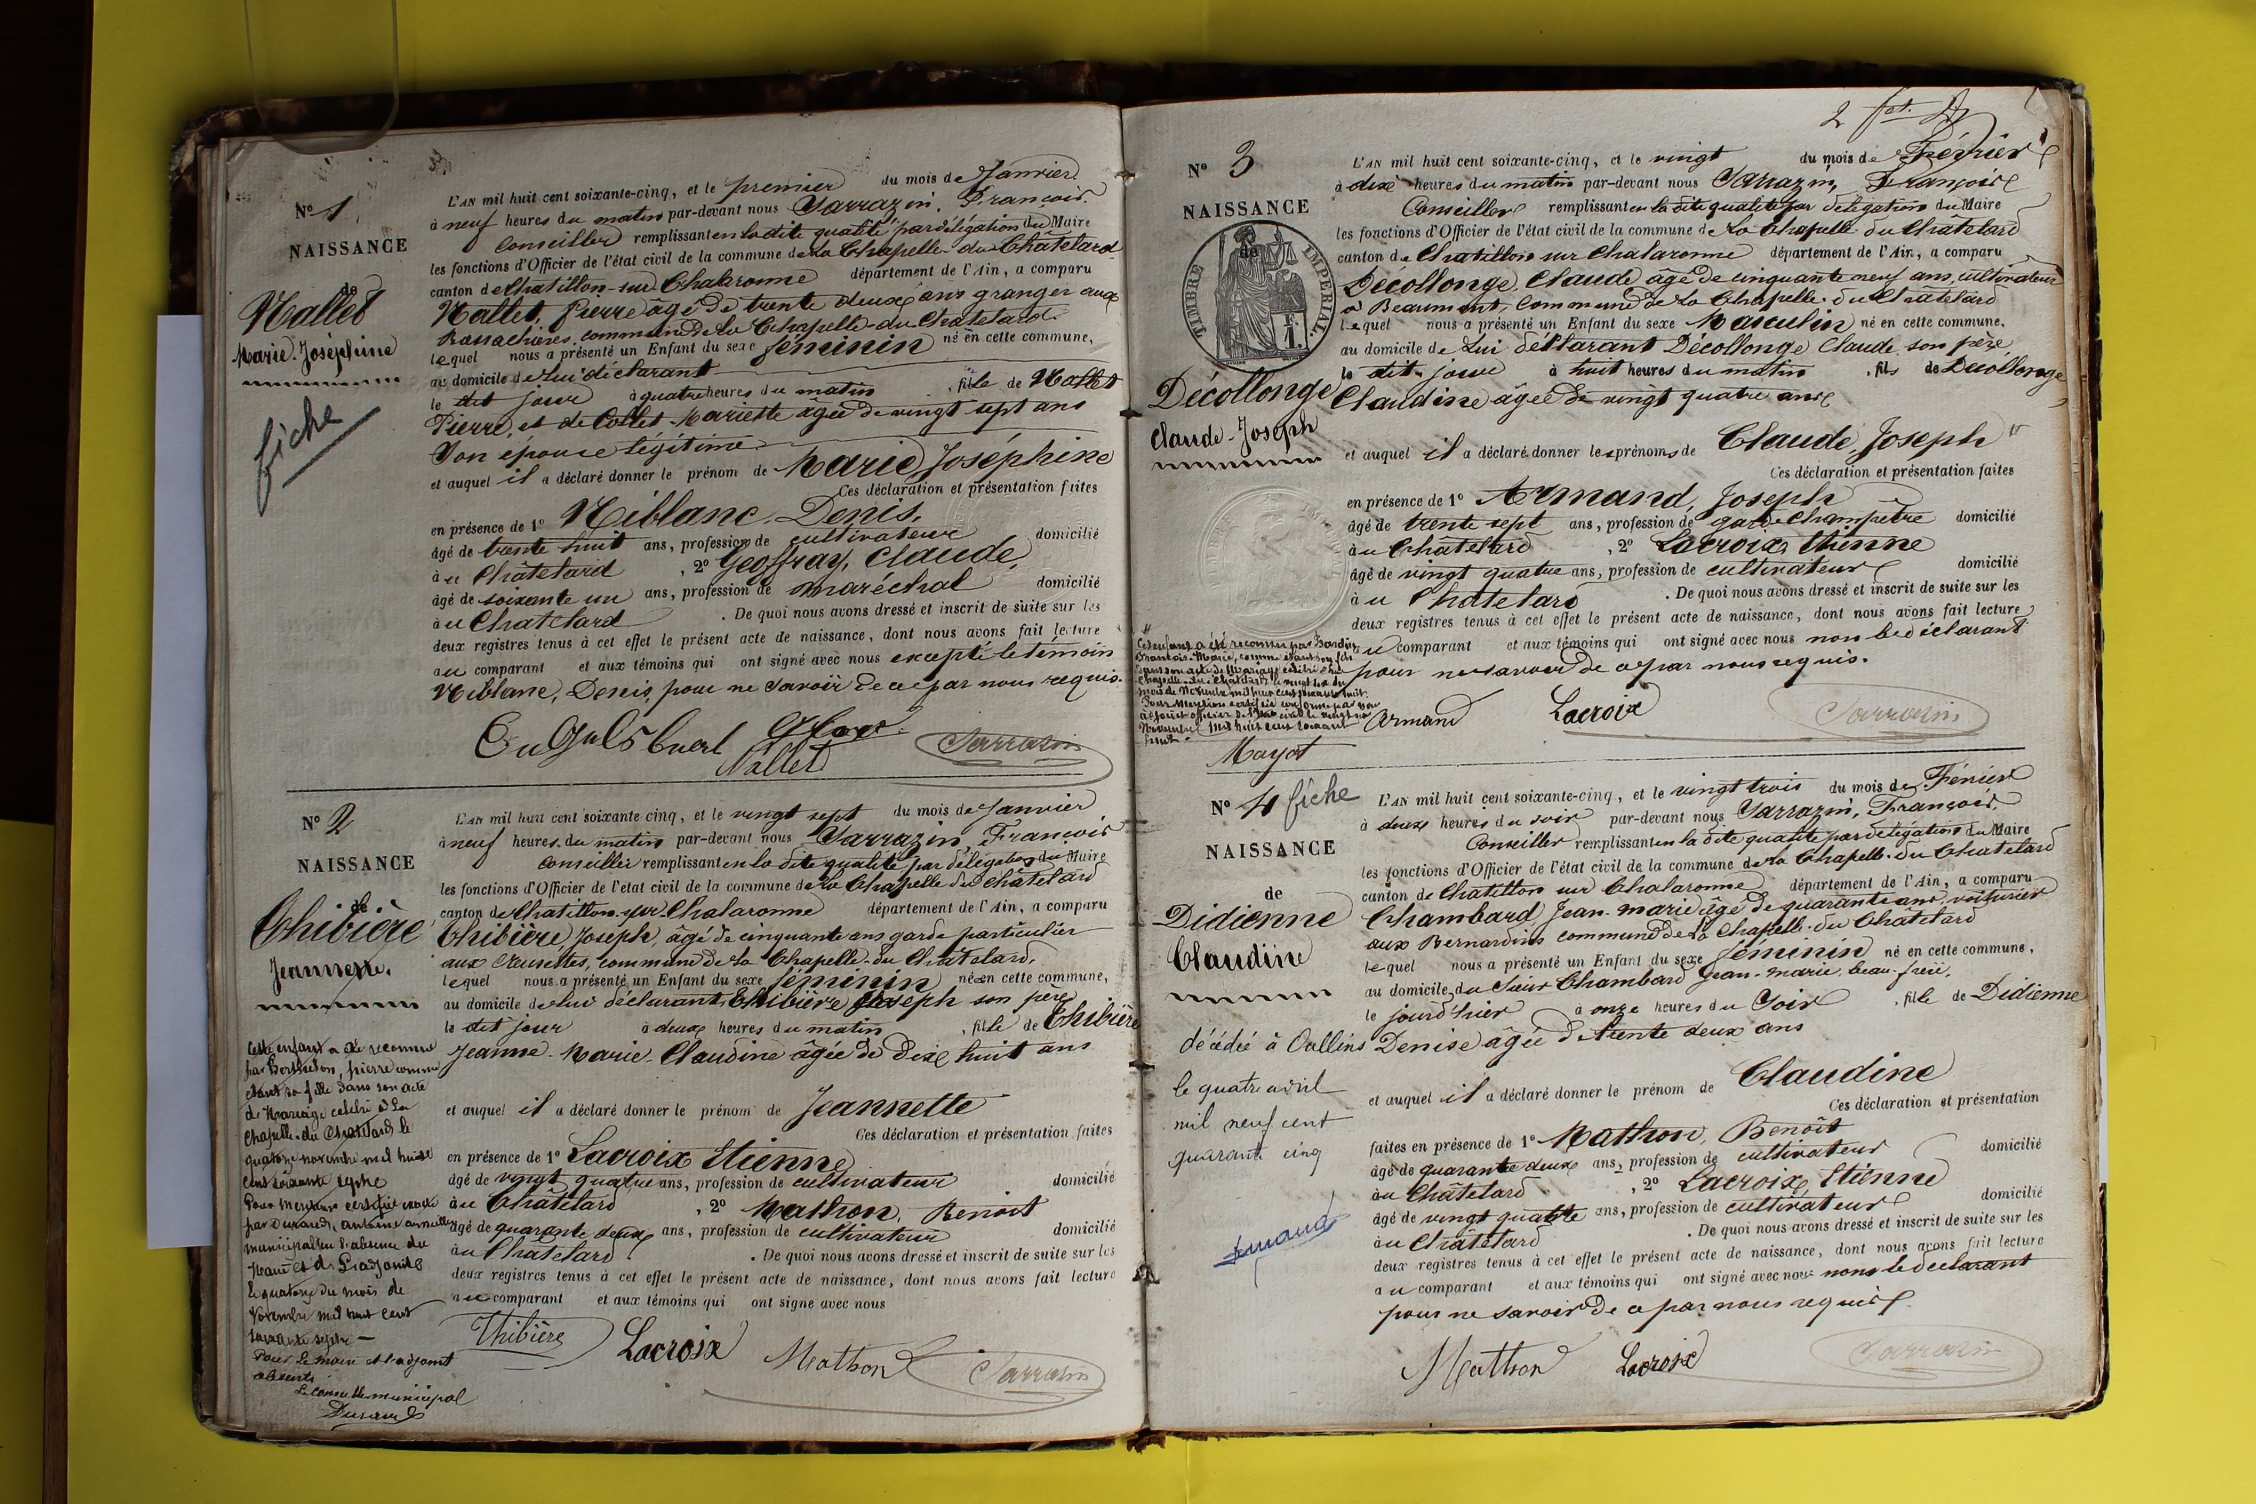 N° 1
NAISSANCE
de
Nallet
Marie-Joséphine
fiche
L'AN mil huit cent soixante-cinq, et le premier du mois de Janvier
à neuf heures du matin par-devant nous Sarrazin, François
Conseiller remplissant en la dite qualité par délégation du Maire
les fonctions d'Officier de l'état civil de la commune de La Chapelle-du-Châtelard
canton de Chatillon-sur-Chalaronne département de l'Ain, a comparu
Nallet, Pierre âgé de trente deux ans granger aux
commune de La Chapelle-du-Chatelard
lequel nous a présenté un Enfant du sexe féminin né en cette commune,
au domicile de lui déclarant
le dit jour à quatre heures du matin, fille de Nallet
Pierre, et de Collet Mariette âgée de vingt sept ans
Son épouse légitime
et auquel il a déclaré donner le prénom de Marie Joséphine
Ces déclaration et présentation faites
en présence de 1° Niblanc, Denis,
âgé de trente huit ans, profession de cultivateur domicilié
à u Châtelard, 2° Geoffray, Claude,
âgé de soixante un ans, profession de maréchal domicilié
à u Chatelard. De quoi nous avons dressé et inscrit de suite sur les
deux registres tenus à cet effet le présent acte de naissance, dont nous avons fait lecture
au comparant et aux témoins qui ont signé avec nous excepté le témoin
Niblanc, Denis, pour ne savoir de ce par nous requis.
Nallet Sarrazin
N° 2
NAISSANCE
de
Thibière
Jeannette.
Cette enfant a été reconnue
par Berthelon, pierre comme
étant sa fille dans son acte
de Mariage célébré à La
Chapelle-du-Chatelard le
quatorze novembre mil huit
cent soixante sept
Pour mention certifié
par Durand, antoine conseiller
municipal en l'absence du
Maire et de L'adjoint
le quatorze du mois de
Novembre mil huit cent
soixante sept
Pour le maire et l'adjoint
absents
Le conseiller municipal
Durand
L'AN mil huit cent soixante cinq, et le vingt sept du mois de Janvier
à neuf heures du matin par-devant nous Sarrazin, François
Conseiller remplissant en la dite qualité par délégation du Maire
les fonctions d'Officier de l'état civil de la commune de La Chapelle du Châtelard
canton de Chatillon-sur-Chalaronne département de l'Ain, a comparu
Thibière, Joseph, âgé de cinquante ans garde particulier
aux Creusettes, commune de La Chapelle-du Châtelard,
lequel nous a présenté un Enfant du sexe féminin née en cette commune,
au domicile de lui déclarant Thibière Joseph son père
le dit jour à deux heures du matin, fille de Thibière
Jeanne-Marie-Claudine âgée de dix huit ans
et auquel il a déclaré donner le prénom de Jeannette
Ces déclaration et présentation faites
en présence de 1° Lacroix Etienne
âgé de vingt quatre ans, profession de cultivateur domicilié
à u Châtelard, 2° Mathon, Benoit
âgé de quarante deux ans, profession de cultivateur domicilié
à u Chatelard. De quoi nous avons dressé et inscrit de suite sur les
deux registres tenus à cet effet le présent acte de naissance, dont nous avons fait lecture
au comparant et aux témoins qui ont signé avec nous
Thibière Lacroix Mathon Sarrazin
2
N° 3
NAISSANCE
de
TIMBRE IMPÉRIAL
F.
1.
Décollonge
Claude-Joseph
Cet enfant a été reconnu par
François-Marie, comme étant son fils
dans son acte de Mariage célébré à La
Chapelle-du-Chatelard le vingt six du
mois de Novembre mil huit cent soixante huit.
Pour Mention certifiée conforme par nous
adjoint officier de l'état civil le vingt
Novembre mil huit cent soixante
huit.
Mayot
L'AN mil huit cent soixante-cinq, et le vingt du mois de Février
à dix heures du matin par-devant nous Sarrazin, François
Conseiller remplissant en la dite qualité par délégation du Maire
les fonctions d'Officier de l'état civil de la commune de La Chapelle du Châtelard
canton de Chatillon sur Chalaronne département de l'Ain, a comparu
Décollonge, Claude âgé de cinquante neuf ans, cultivateur
à Beaumont, Commune de La Chapelle-du Châtelard
lequel nous a présenté un Enfant du sexe Masculin né en cette commune,
au domicile de Lui déclarant Décollonge Claude, son père
le dit jour à huit heures du matin, fils de Décollonge
Claudine âgée de vingt quatre ans
et auquel il a déclaré donner les prénoms de Claude, Joseph
Ces déclaration et présentation faites
en présence de 1° Armand, Joseph
âgé de trente sept ans, profession de garde Champêtre domicilié
à u Châtelard, 2° Lacroix, Etienne
âgé de vingt quatre ans, profession de cultivateur domicilié
à u Châtelard. De quoi nous avons dressé et inscrit de suite sur les
deux registres tenus à cet effet le présent acte de naissance, dont nous avons fait lecture
au comparant et aux témoins qui ont signé avec nous non le déclarant
pour ne savoir de ce par nous requis.
Armand Lacroix Sarrazin
N° 4 fiche
NAISSANCE
de
Didienne
Claudine
décédée à Oullins
le quatre avril
mil neuf cent
quarante cinq
L'AN mil huit cent soixante-cinq, et le vingt trois du mois de Février
à deux heures du soir par-devant nous Sarrazin, François
Conseiller remplissant en la dite qualité par délégation du Maire
les fonctions d'Officier de l'état civil de la commune de La Chapelle-du Chatelard
canton de Chatillon sur Chalaronne département de l'Ain, a comparu
Chambard, Jean-marie âgé de quarante ans, voiturier
aux Bernardins commune de La Chapelle-du Châtelard
lequel nous a présenté un Enfant du sexe féminin né en cette commune,
au domicile du Sieur Chambard Jean-marie, beau-frère,
le jour d'hier à onze heures du Soir, fille de Didienne
Denise âgée de trente deux ans
et auquel il a déclaré donner le prénom de Claudine
Ces déclaration et présentation
faites en présence de 1° Mathon, Benoît
âgé de quarante deux ans, profession de cultivateur domicilié
à u Châtelard, 2° Lacroix, Etienne
âgé de vingt quatre ans, profession de cultivateur domicilié
à u Châtelard. De quoi nous avons dressé et inscrit de suite sur les
deux registres tenus à cet effet le présent acte de naissance, dont nous avons fait lecture
au comparant et aux témoins qui ont signé avec nous non le déclarant
pour ne savoir de ce par nous requis.
Mathon Lacroix Sarrazin